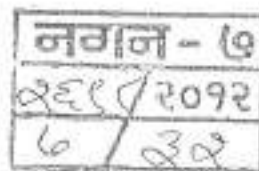 नगन - ७
२६९८/२०१२
७/३२